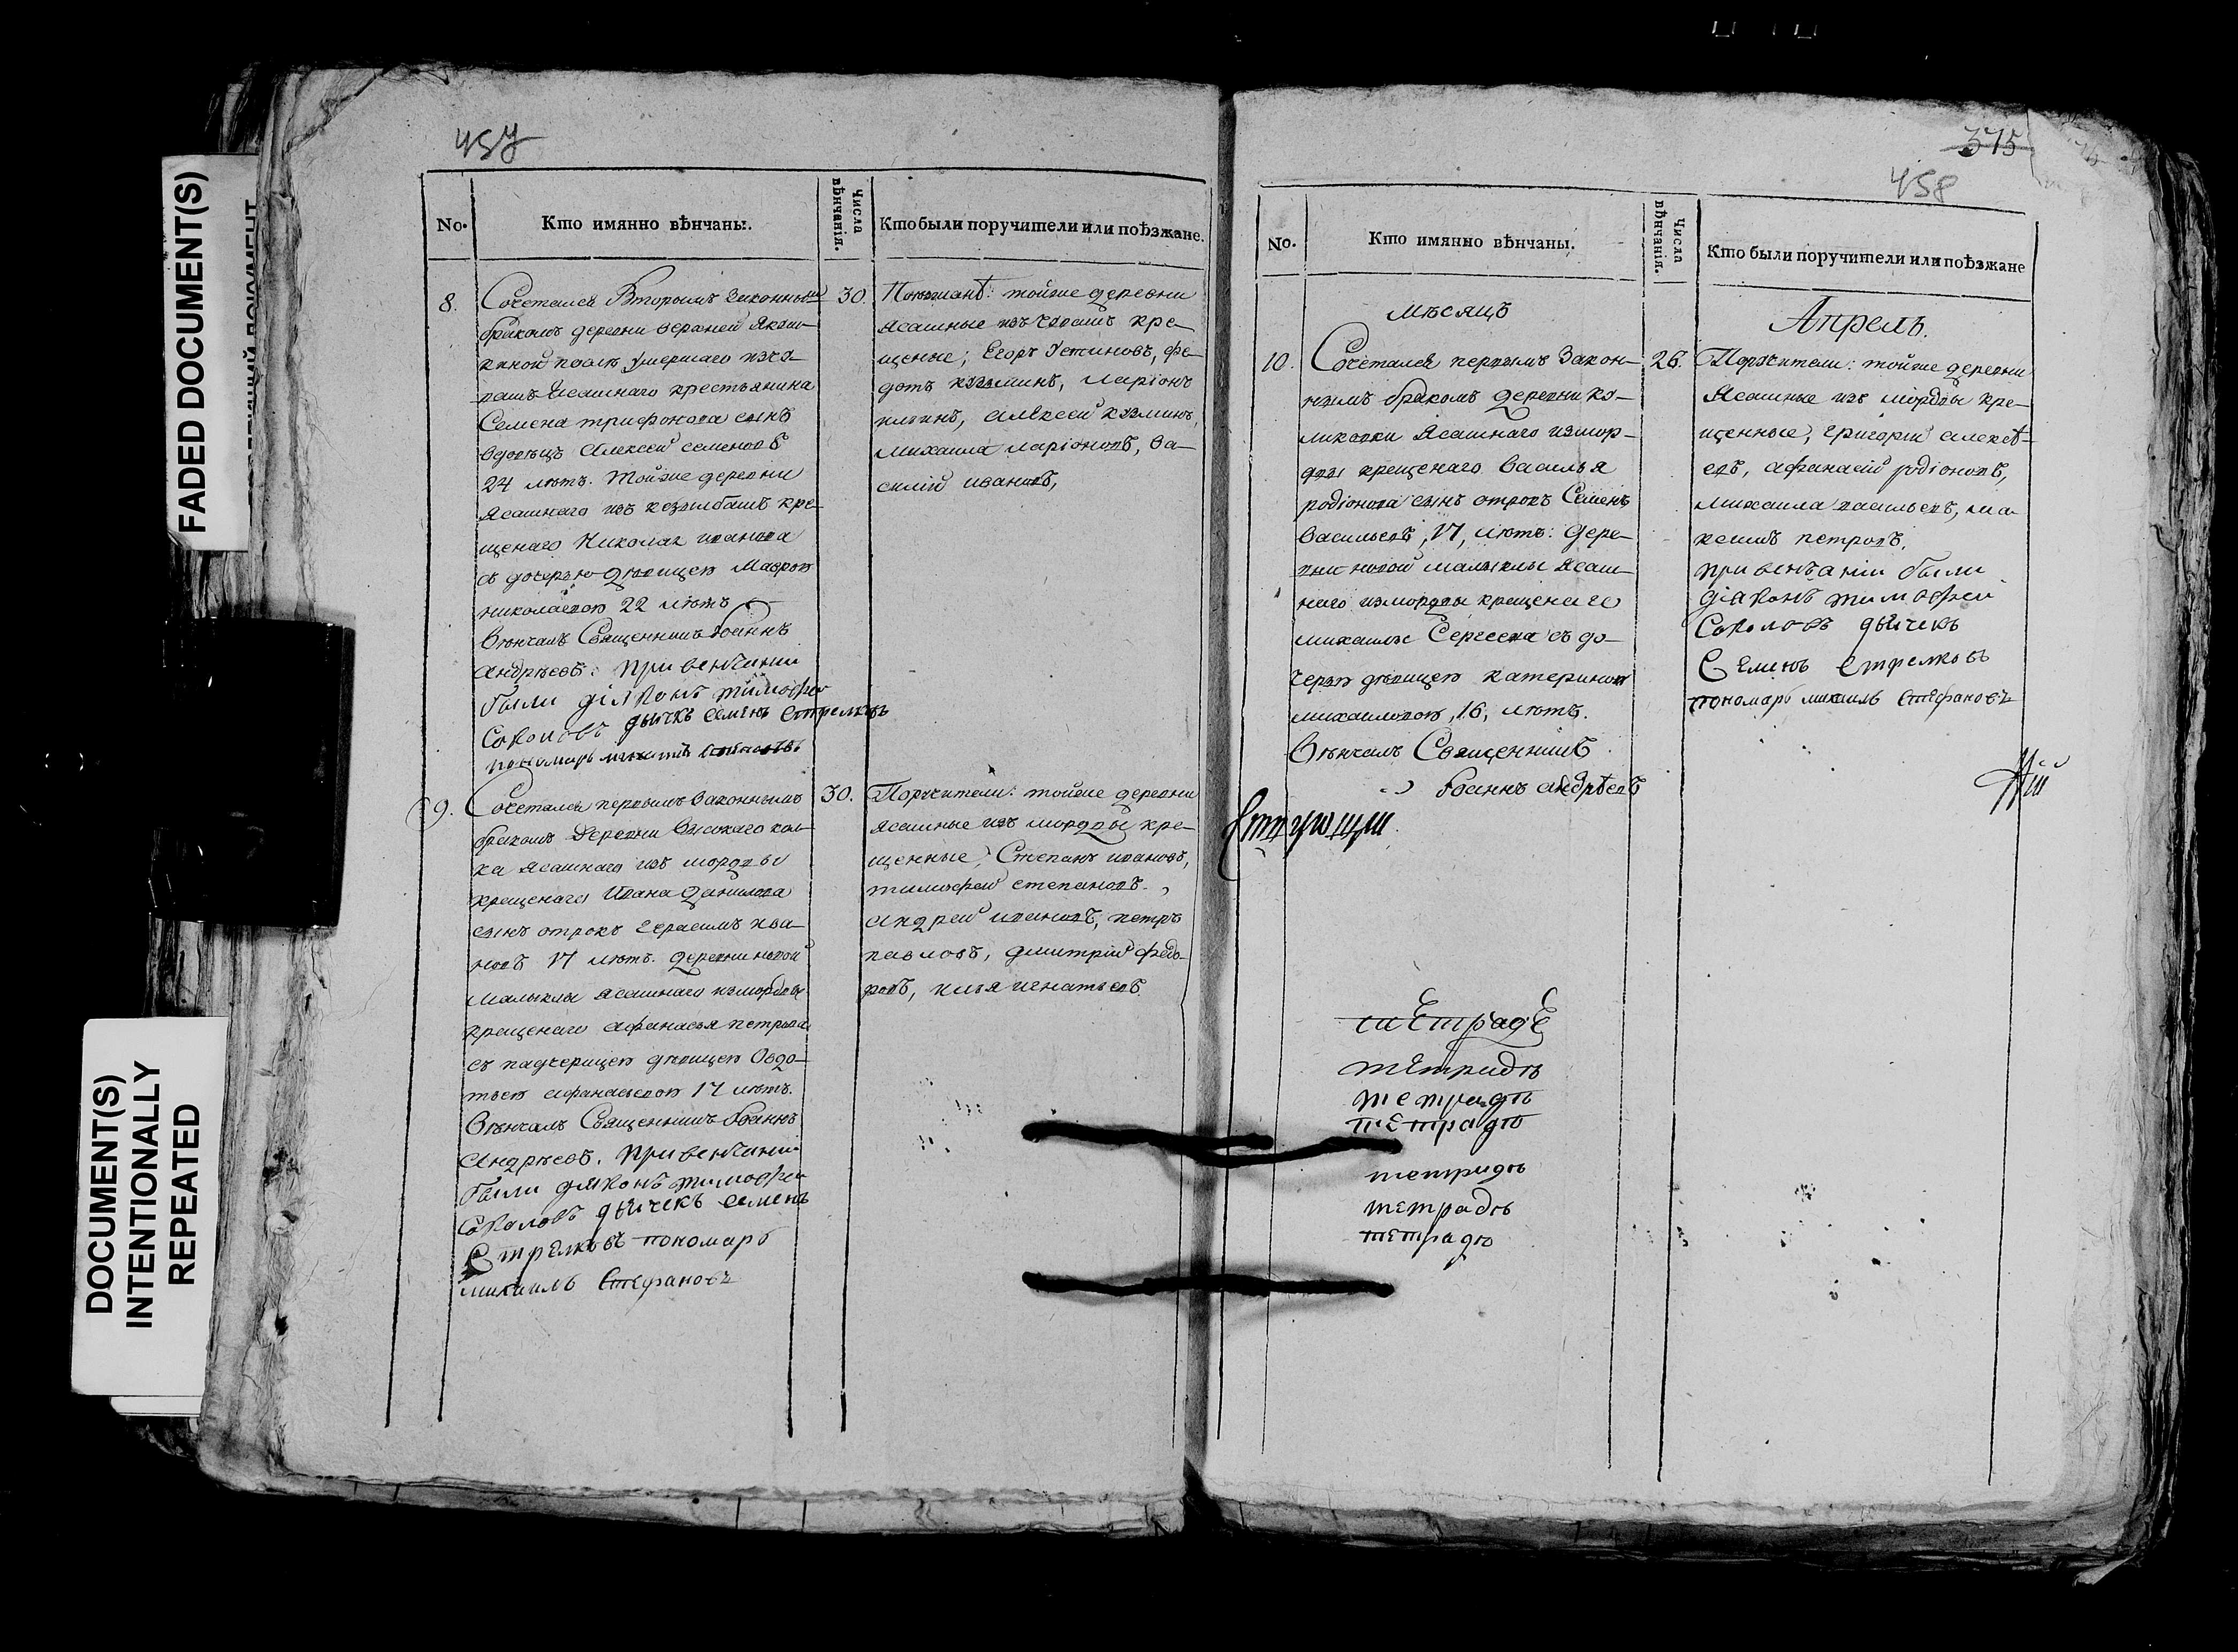 FADED DOCUMENT(S)
DOCUMENT(S)
INTENTIONALLY
REPEATED
457
No.
Кто имянно вѣнчаны.
Числа
вѣнчанія.
Кто были поручители или поѣзжане.
8.
Сочетался Вторымъ законнымъ
бракомъ деревни верхней Якуш-
киной послѣ умершаго изъ чу-
вашъ Ясашнаго крестьянина
Семена трифонова сынъ
вдовецъ Алексей семеновъ
24 лѣтъ. тойже деревни
Ясашнаго изъ кезылбашъ кре-
щенаго Николая иванова
съ дочерью девицею Маврою
николаевою 22 лѣтъ
Вѣнчалъ Священникъ Иоаннъ
Андрѣевъ: при венчании
были діаконъ тимофеи
Соколовъ дьячекъ семенъ Стрелковъ
пономарь михаилъ
30.
Поѣзжанѣ: тойже деревни
ясашные изъ чувашъ кре-
щеные; Егоръ Устиновъ, фе-
дотъ кузминъ, ларіонъ
ильинъ, алексей кузминъ,
михаила ларіоновъ, ва-
силій ивановъ,
9.
Сочетался первымъ законнымъ
бракомъ деревни Высокаго кол-
ка ясашнаго изъ мордвы
крещенаго Ивана данилова
сынъ отрокъ Герасимъ ива-
новъ 17 лѣтъ. деревни новой
Малыклы ясашнаго изморъдвы
крещенаго афанасья петрова
съ падчерицею девицею Овдо-
тьею афанасьевою 17 лѣтъ.
Вѣнчалъ Священникъ Иоаннъ
Андрѣевъ. при венчании
были діаконъ тимофеи
Соколовъ дьячекъ семенъ
Стрелковъ пономарь
михаилъ Стефановъ
30.
Поручители: тойже деревни
ясашные изъ мордвы кре-
щенные; Степанъ ивановъ,
тимофей степановъ,
андрей ивановъ, петръ
павловъ, дмитрій федо-
ровъ, илья игнатьевъ.
375
458
No.
Кто имянно вѣнчаны.
Числа
вѣнчанія.
Кто были поручители или поѣзжане
мѣсяцъ
Апрель.
10.
Сочетался первымъ Закон-
нымъ бракомъ деревни ку-
ликовки Ясашнаго измор-
двы крещенаго василья
родіонова сынъ отрокъ Семенъ
васильевъ, 17, лѣтъ: дере-
вни новой малыклы Ясаш-
наго измордвы крещенаго
михаилы Сергеева съ до-
черью девицею катериною
михаиловою, 16, лѣтъ.
Вѣнчалъ Священникъ
Иоаннъ андрѣевъ
26.
Поручители: тойже деревни
Ясашные изъ мордвы кре-
щенные; григорій алексѣ-
евъ, афанасій родіоновъ,
михаила васильевъ, ма-
ксимъ петровъ.
при венчаніи были
діаконъ тимофеи
Соколовъ дьячекъ
Семенъ Стрелковъ
пономарь михаилъ Стефановъ
тЕтрадЕ
тетрадь
тетрадь
тетрадь
тетрадь
тетрадь
тетрадь